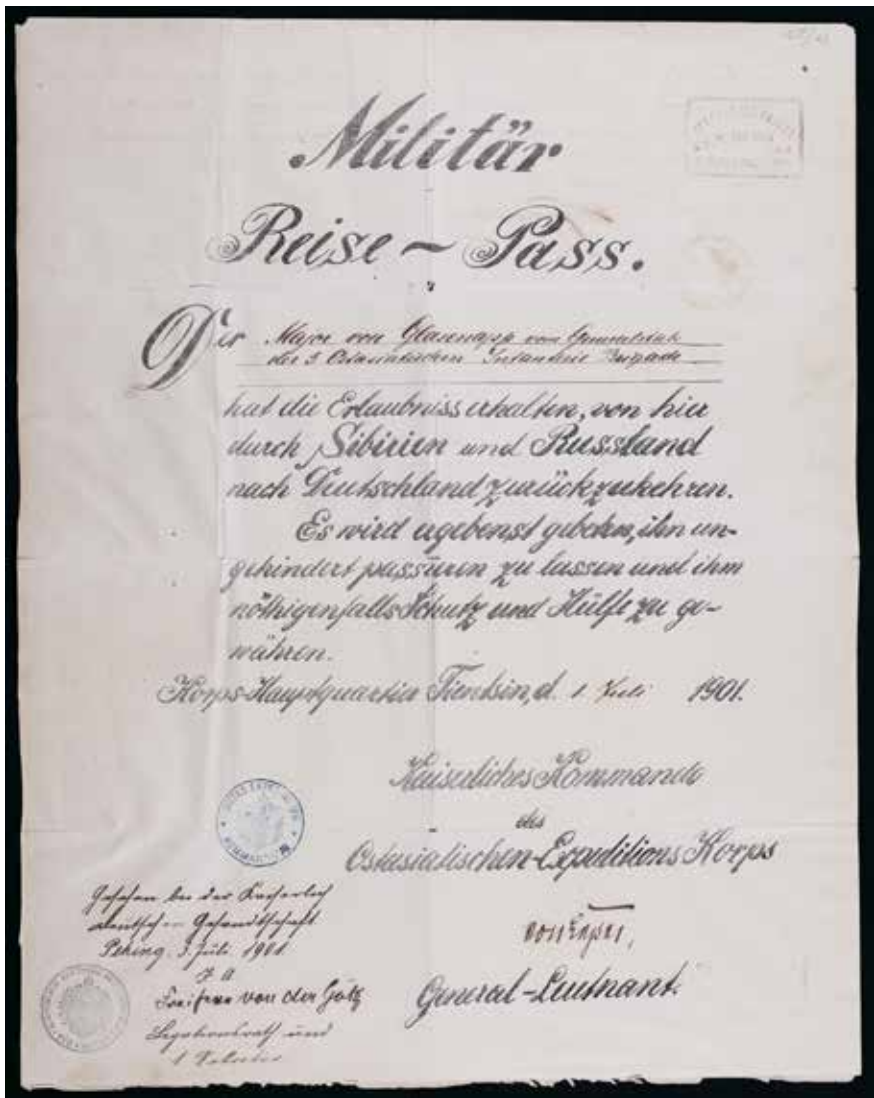 Militär
Reise ~ Pass.
Der Major von Glasenapp vom Generalstab
der 3 Ostasiatischen Infanterie Brigade
hat die Erlaubniss erhalten, von hier
durch Sibirien und Russland
nach Deutschland zurückzukehren.
Es wird ergebenst gebeten, ihn un-
gehindert passieren zu lassen und ihm
nöthigenfalls Schutz und Hülfe zu ge-
währen.
Korps-Hauptquartier Tientsin, d. 1 Juli 1901.
Kaiserliches Kommando
des
Ostasiatischen-Expeditions Korps
General-Leutnant.
Gesehen bei der Kaiserlich
deutschen Gesandtschaft
Peking. 3. Juli 1901
I A
Freiherr von der Goltz
Legationsrath und